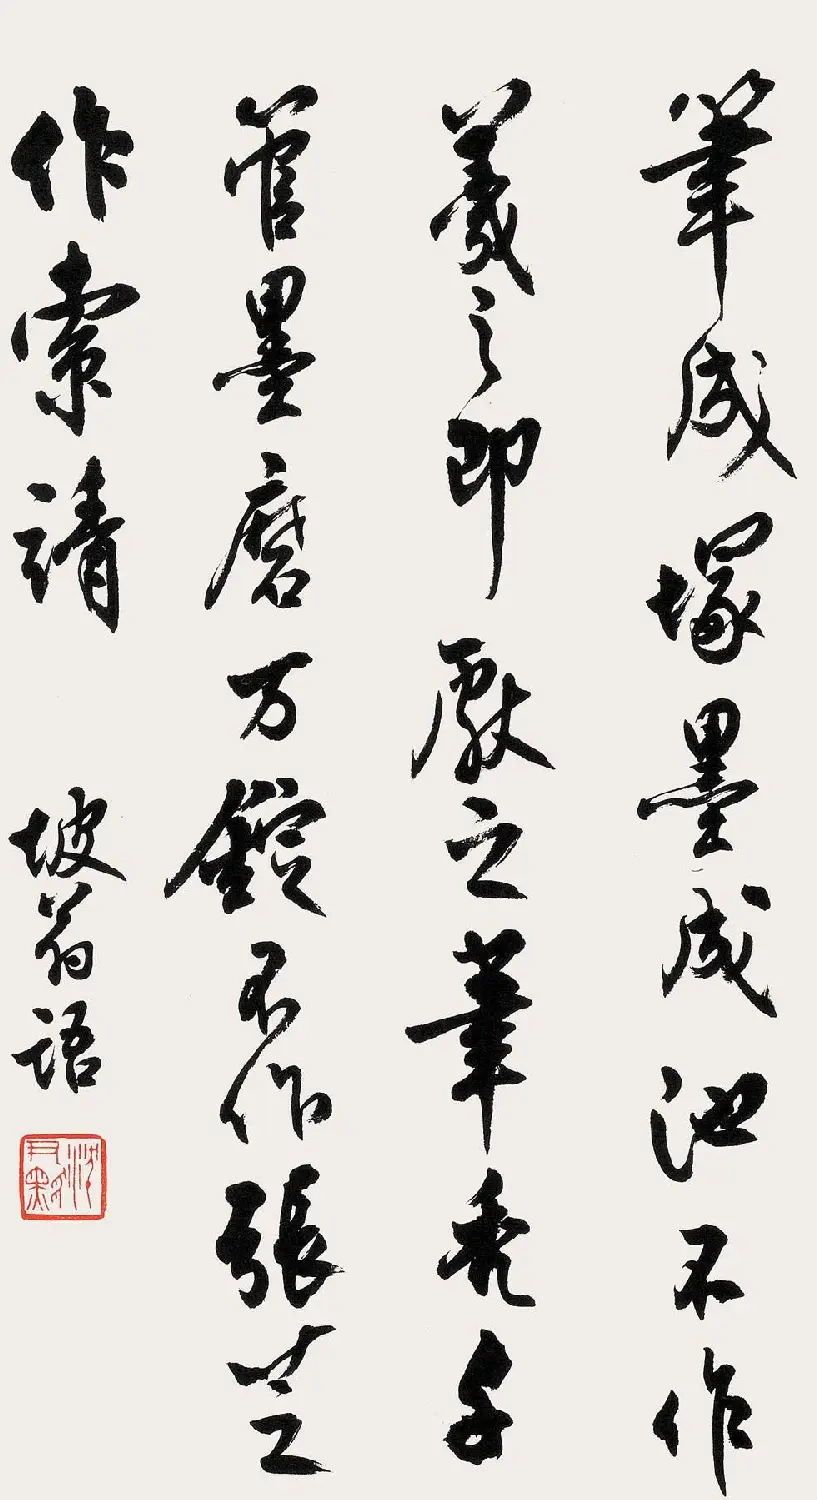 筆成塚墨成池不作
羲之即獻之筆禿千
管墨磨万鋌不作張芝
作索靖
坡翁語
沈尹默